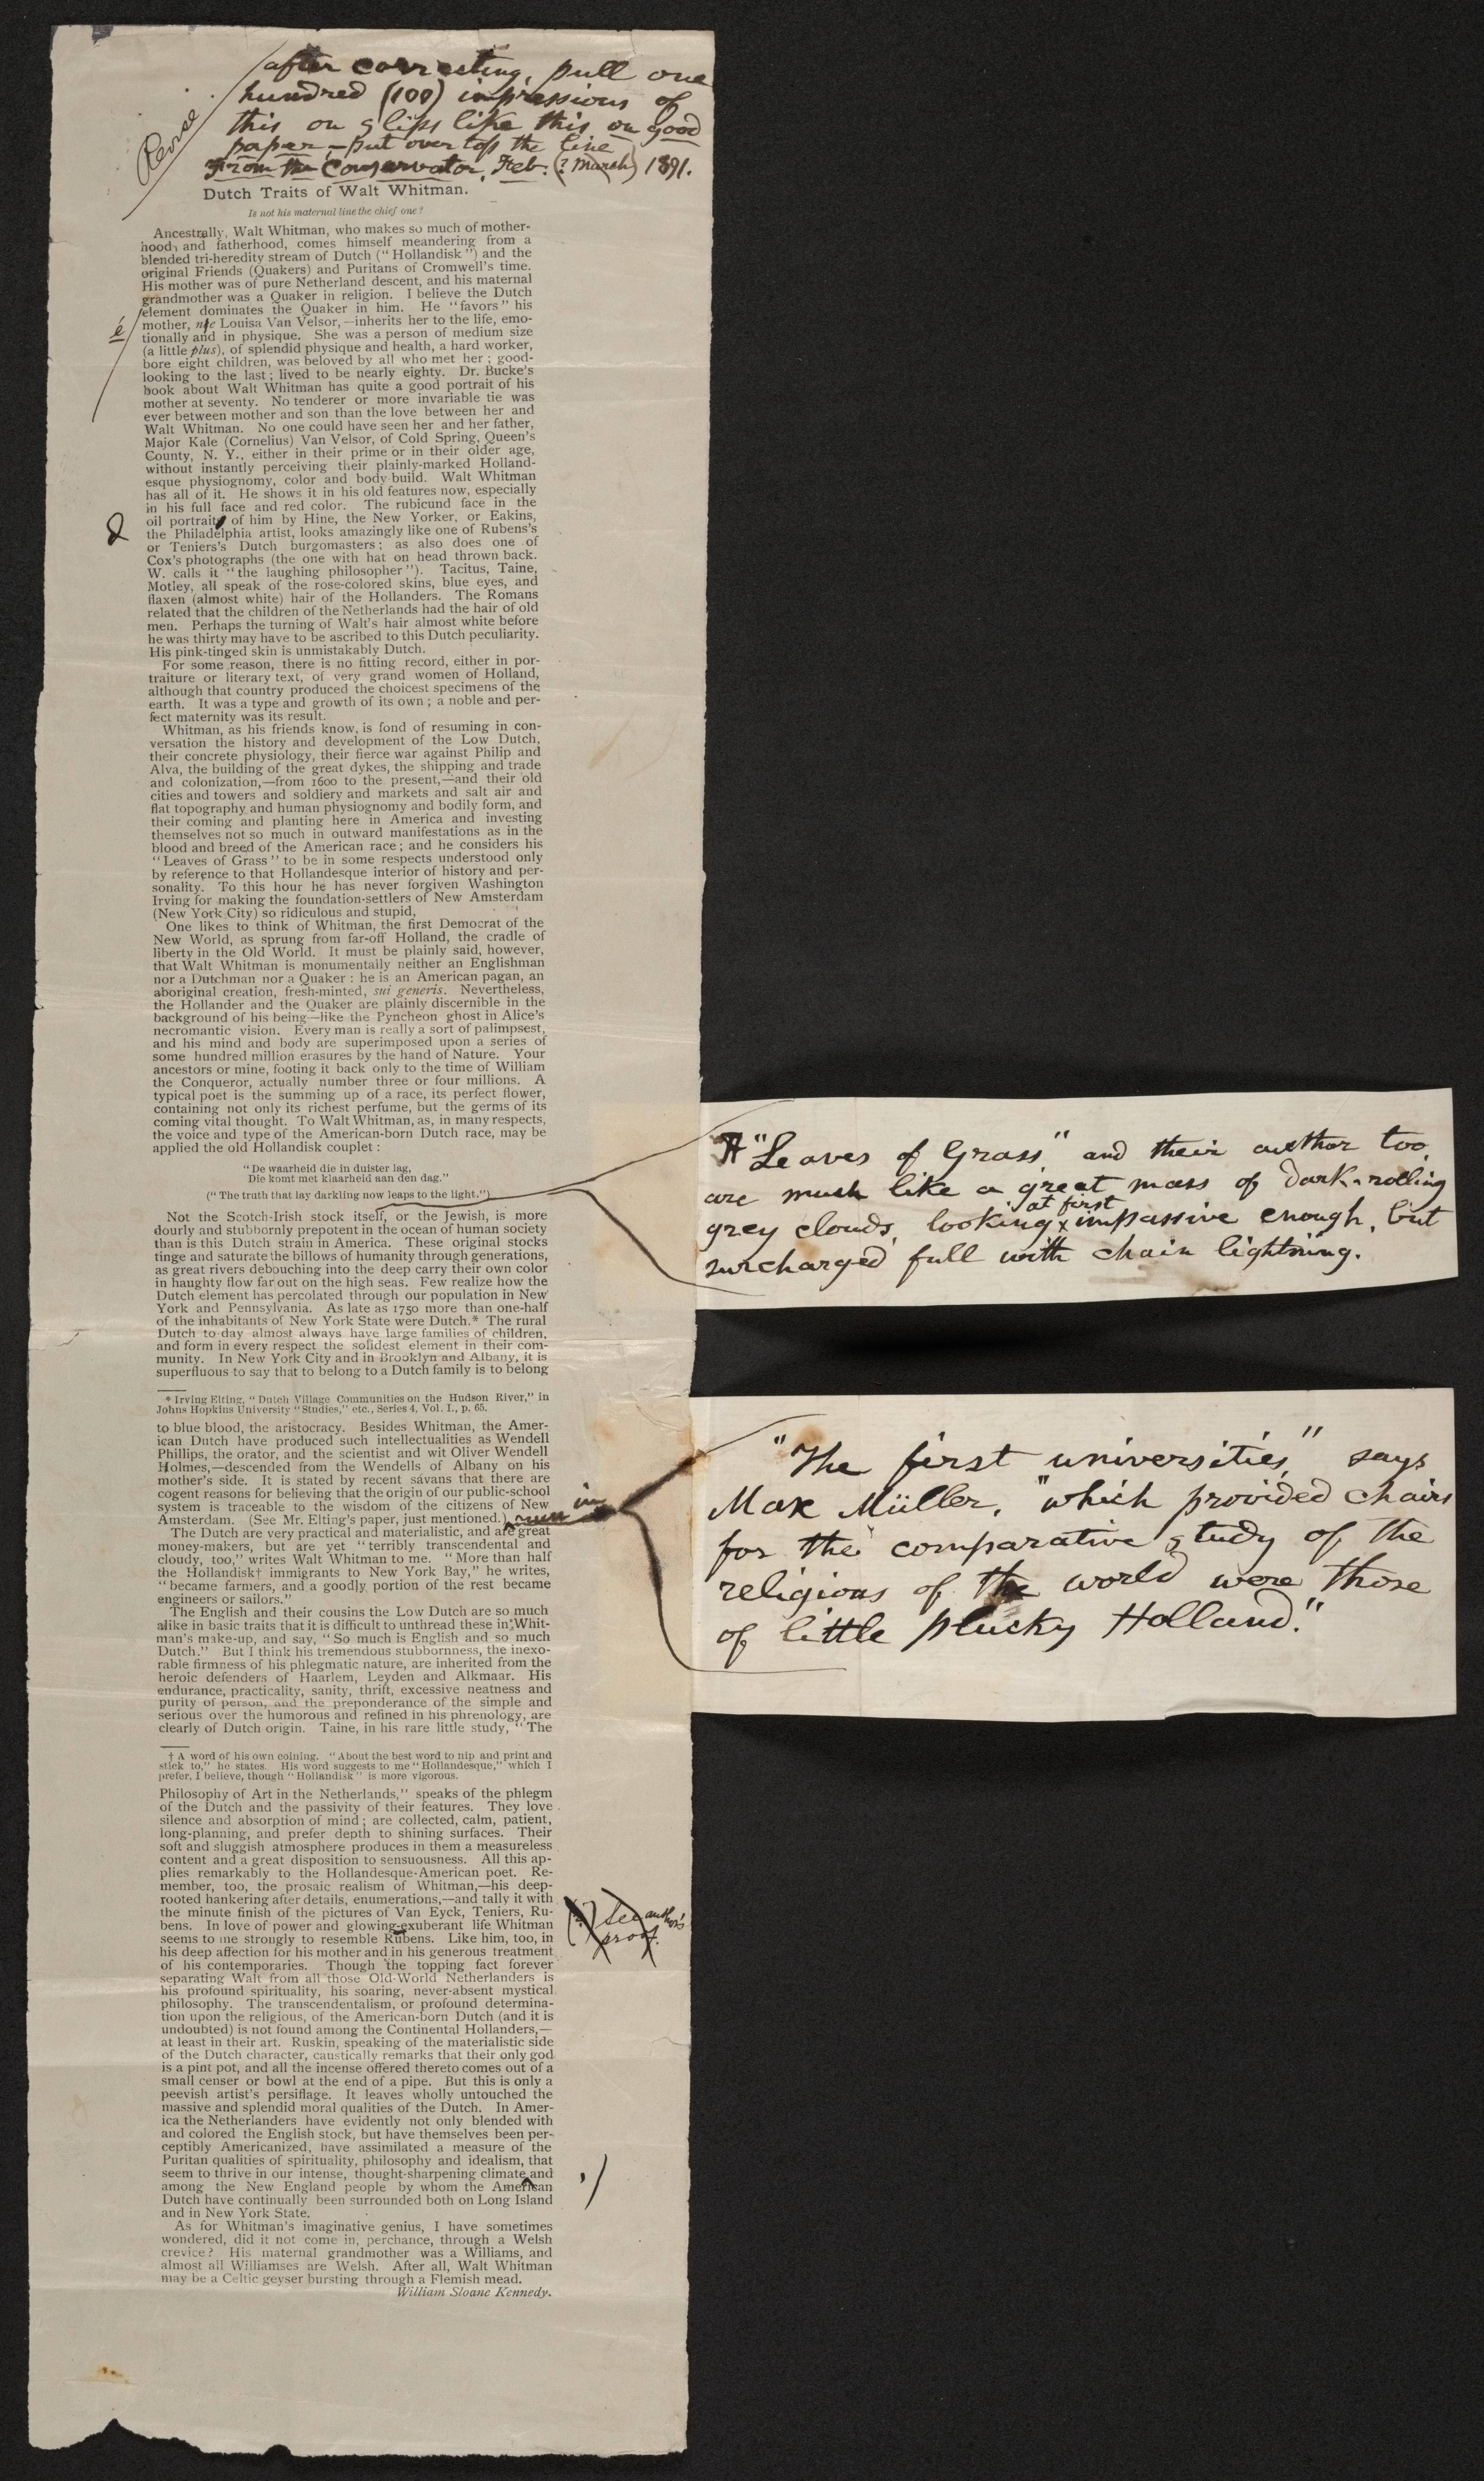 Revise
after correcting, pull one
hundred (100) impressions of
this on slips like this on good
paper,—put over top the line
From the Conservator, Feb. (? March) 1891.
Dutch Traits of Walt Whitman.
Is not his maternal line the chief one?
Ancestrally, Walt Whitman, who makes so much of mother-
hood, and fatherhood, comes himself meandering from a
blended tri-heredity stream of Dutch (“Hollandisk”) and the
original Friends (Quakers) and Puritans of Cromwell's time.
His mother was of pure Netherland descent, and his maternal
grandmother was a Quaker in religion. I believe the Dutch
element dominates the Quaker in him. He “favors” his
é/ mother, nee Louisa Van Velsor,—inherits her to the life, emo-
tionally and in physique. She was a person of medium size
(a little plus), of splendid physique and health, a hard worker,
bore eight children, was beloved by all who met her; good-
looking to the last; lived to be nearly eighty. Dr. Bucke's
book about Walt Whitman has quite a good portrait of his
mother at seventy. No tenderer or more invariable tie was
ever between mother and son than the love between her and
Walt Whitman. No one could have seen her and her father,
Major Kale (Cornelius) Van Velsor, of Cold Spring, Queen's
County, N. Y., either in their prime or in their older age,
without instantly perceiving their plainly-marked Holland-
esque physiognomy, color and body build. Walt Whitman
has all of it. He shows it in his old features now, especially
in his full face and red color. The rubicund face in the
oil portraits of him by Hine, the New Yorker, or Eakins,
the Philadelphia artist, looks amazingly like one of Rubens's
or Teniers's Dutch burgomasters; as also does one of
Cox's photographs (the one with hat on head thrown back.
W. calls it “the laughing philosopher”). Tacitus, Taine,
Motley, all speak of the rose-colored skins, blue eyes, and
flaxen (almost white) hair of the Hollanders. The Romans
related that the children of the Netherlands had the hair of old
men. Perhaps the turning of Walt's hair almost white before
he was thirty may have to be ascribed to this Dutch peculiarity.
His pink-tinged skin is unmistakably Dutch.
For some reason, there is no fitting record, either in por-
traiture or literary text, of very grand women of Holland,
although that country produced the choicest specimens of the
earth. It was a type and growth of its own; a noble and per-
fect maternity was its result.
Whitman, as his friends know, is fond of resuming in con-
versation the history and development of the Low Dutch,
their concrete physiology, their fierce war against Philip and
Alva, the building of the great dykes, the shipping and trade
and colonization,—from 1600 to the present,—and their old
cities and towers and soldiery and markets and salt air and
flat topography and human physiognomy and bodily form, and
their coming and planting here in America and investing
themselves not so much in outward manifestations as in the
blood and breed of the American race; and he considers his
“Leaves of Grass” to be in some respects understood only
by reference to that Hollandesque interior of history and per-
sonality. To this hour he has never forgiven Washington
Irving for making the foundation-settlers of New Amsterdam
(New York City) so ridiculous and stupid,
One likes to think of Whitman, the first Democrat of the
New World, as sprung from far-off Holland, the cradle of
liberty in the Old World. It must be plainly said, however,
that Walt Whitman is monumentally neither an Englishman
nor a Dutchman nor a Quaker: he is an American pagan, an
aboriginal creation, fresh-minted, sui generis. Nevertheless,
the Hollander and the Quaker are plainly discernible in the
background of his being—like the Pyncheon ghost in Alice's
necromantic vision. Every man is really a sort of palimpsest,
and his mind and body are superimposed upon a series of
some hundred million erasures by the hand of Nature. Your
ancestors or mine, footing it back only to the time of William
the Conqueror, actually number three or four millions. A
typical poet is the summing up of a race, its perfect flower,
containing not only its richest perfume, but the germs of its
coming vital thought. To Walt Whitman, as, in many respects,
the voice and type of the American-born Dutch race, may be
applied the old Hollandisk couplet:
“De waarheid die in duister lag,
Die komt met klaarheid aan den dag.”
(“The truth that lay darkling now leaps to the light.”)
“Leaves of Grass” and their author too,
are much like a great mass of dark-rolling
at first
grey clouds, looking impassive enough, but
surcharged full with chain lightning.
Not the Scotch-Irish stock itself, or the Jewish, is more
dourly and stubbornly prepotent in the ocean of human society
than is this Dutch strain in America. These original stocks
tinge and saturate the billows of humanity through generations,
as great rivers debouching into the deep carry their own color
in haughty flow far out on the high seas. Few realize how the
Dutch element has percolated through our population in New
York and Pennsylvania. As late as 1750 more than one-half
of the inhabitants of New York State were Dutch.* The rural
Dutch to-day almost always have large families of children,
and form in every respect the solidest element in their com-
munity. In New York City and in Brooklyn and Albany, it is
superfluous to say that to belong to a Dutch family is to belong
* Irving Elting, “Dutch Village Communities on the Hudson River,” in
Johns Hopkins University “Studies,” etc., Series 4, Vol. I., p. 65.
to blue blood, the aristocracy. Besides Whitman, the Amer-
ican Dutch have produced such intellectualities as Wendell
Phillips, the orator, and the scientist and wit Oliver Wendell
Holmes,—descended from the Wendells of Albany on his
mother's side. It is stated by recent savans that there are
cogent reasons for believing that the origin of our public-school
system is traceable to the wisdom of the citizens of New
Amsterdam. (See Mr. Elting's paper, just mentioned.) run in
“The first universities,” says
Max Müller, “which provided chairs
for the comparative study of the
religions of the world were those
of little plucky Holland.”
The Dutch are very practical and materialistic, and are great
money-makers, but are yet “terribly transcendental and
cloudy, too,” writes Walt Whitman to me. “More than half
the Hollandisk† immigrants to New York Bay,” he writes,
“became farmers, and a goodly portion of the rest became
engineers or sailors.”
The English and their cousins the Low Dutch are so much
alike in basic traits that it is difficult to unthread these in Whit-
man's make-up, and say, “So much is English and so much
Dutch.” But I think his tremendous stubbornness, the inexo-
rable firmness of his phlegmatic nature, are inherited from the
heroic defenders of Haarlem, Leyden and Alkmaar. His
endurance, practicality, sanity, thrift, excessive neatness and
purity of person, and the preponderance of the simple and
serious over the humorous and refined in his phrenology, are
clearly of Dutch origin. Taine, in his rare little study, “The
† A word of his own coining. “About the best word to nip and print and
stick to,” he states. His word suggests to me “Hollandesque,” which I
prefer, I believe, though “Hollandisk” is more vigorous.
Philosophy of Art in the Netherlands,” speaks of the phlegm
of the Dutch and the passivity of their features. They love
silence and absorption of mind; are collected, calm, patient,
long-planning, and prefer depth to shining surfaces. Their
soft and sluggish atmosphere produces in them a measureless
content and a great disposition to sensuousness. All this ap-
plies remarkably to the Hollandesque-American poet. Re-
member, too, the prosaic realism of Whitman,—his deep-
rooted hankering after details, enumerations,—and tally it with
the minute finish of the pictures of Van Eyck, Teniers, Ru-
bens. In love of power and glowing-exuberant life Whitman
seems to me strongly to resemble Rubens. Like him, too, in
his deep affection for his mother and in his generous treatment
of his contemporaries. Though the topping fact forever
separating Walt from all those Old-World Netherlanders is
his profound spirituality, his soaring, never-absent mystical
philosophy. The transcendentalism, or profound determina-
tion upon the religious, of the American-born Dutch (and it is
undoubted) is not found among the Continental Hollanders,—
at least in their art. Ruskin, speaking of the materialistic side
of the Dutch character, caustically remarks that their only god
is a pint pot, and all the incense offered thereto comes out of a
small censer or bowl at the end of a pipe. But this is only a
peevish artist's persiflage. It leaves wholly untouched the
massive and splendid moral qualities of the Dutch. In Amer-
ica the Netherlanders have evidently not only blended with
and colored the English stock, but have themselves been per-
ceptibly Americanized, have assimilated a measure of the
Puritan qualities of spirituality, philosophy and idealism, that
seem to thrive in our intense, thought-sharpening climate and ,/
among the New England people by whom the American
Dutch have continually been surrounded both on Long Island
and in New York State.
As for Whitman's imaginative genius, I have sometimes
wondered, did it not come in, perchance, through a Welsh
crevice? His maternal grandmother was a Williams, and
almost all Williamses are Welsh. After all, Walt Whitman
may be a Celtic geyser bursting through a Flemish mead.
William Sloane Kennedy.
(?) See author's
proof.